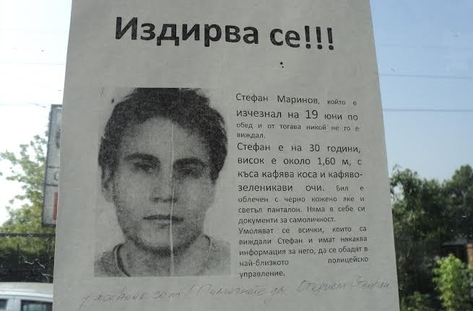 Издирва се!!!
Стефан Маринов, който е
изчезнал на 19 юни по
обед и от тогава никой не го е
виждал.
Стефан е на 30 години,
висок е около 1,60 м, с
къса кафява коса и кафяво-
зеленикави очи. Бил е
облечен с черно кожено яке и
светъл панталон. Няма в себе си
документи за самоличност.
Умоляват се всички, които са
виждали Стефан и имат някаква
информация за него, да се обадят в
най-близкото полицейско
управление.